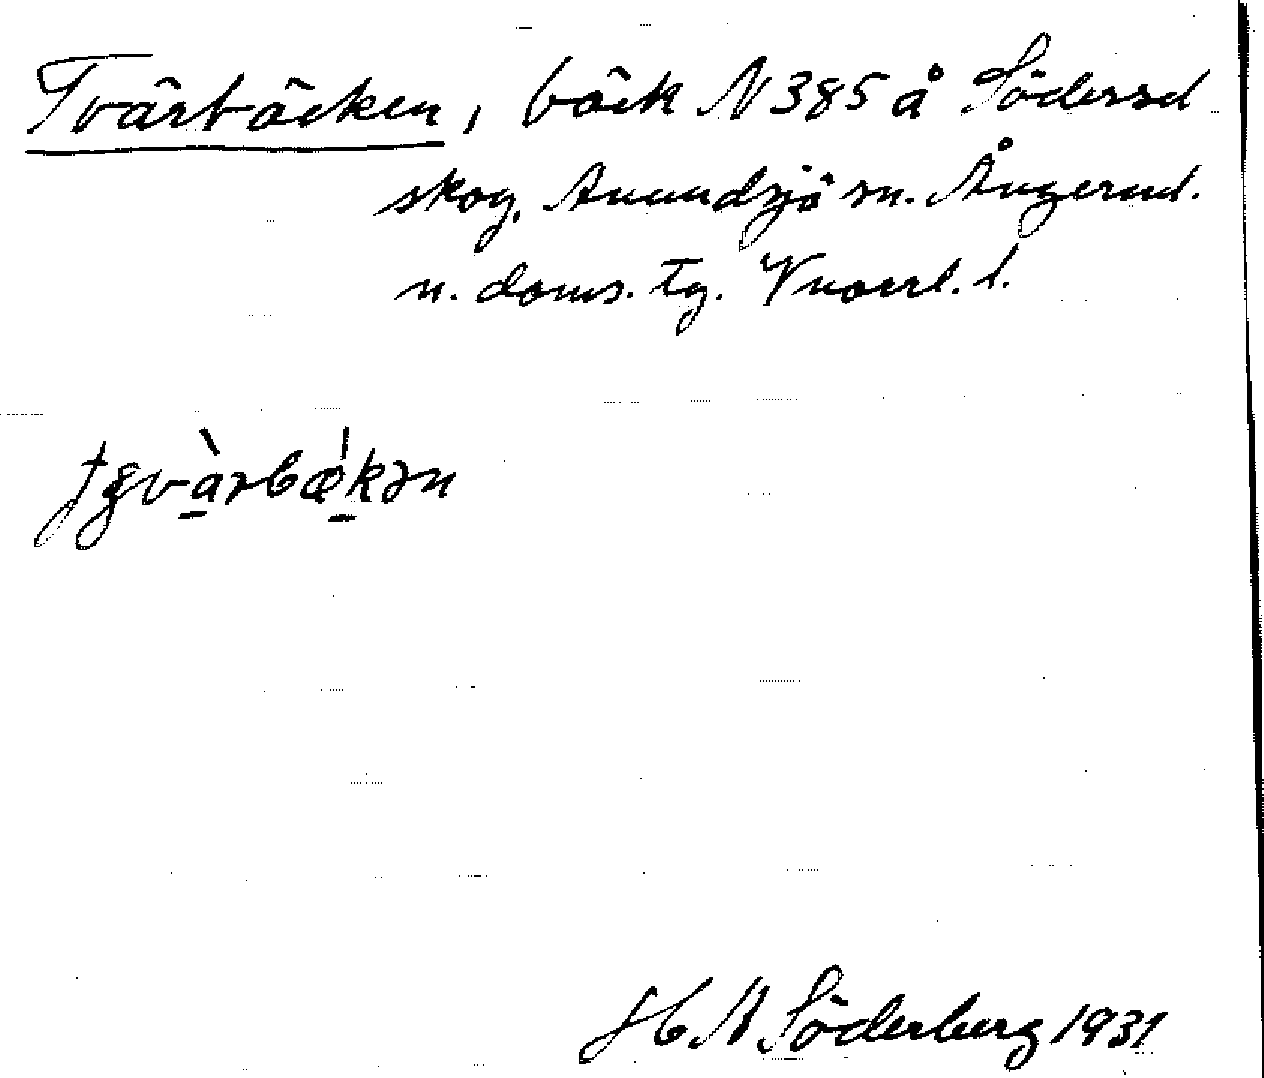 Tvärbäcken, bäck N 385 å Södersel
skog, Anundsjö sn. Ångerml.
n. doms. tg. Vnorrl. l.
tgvàrbækən
H A Söderberg 1931